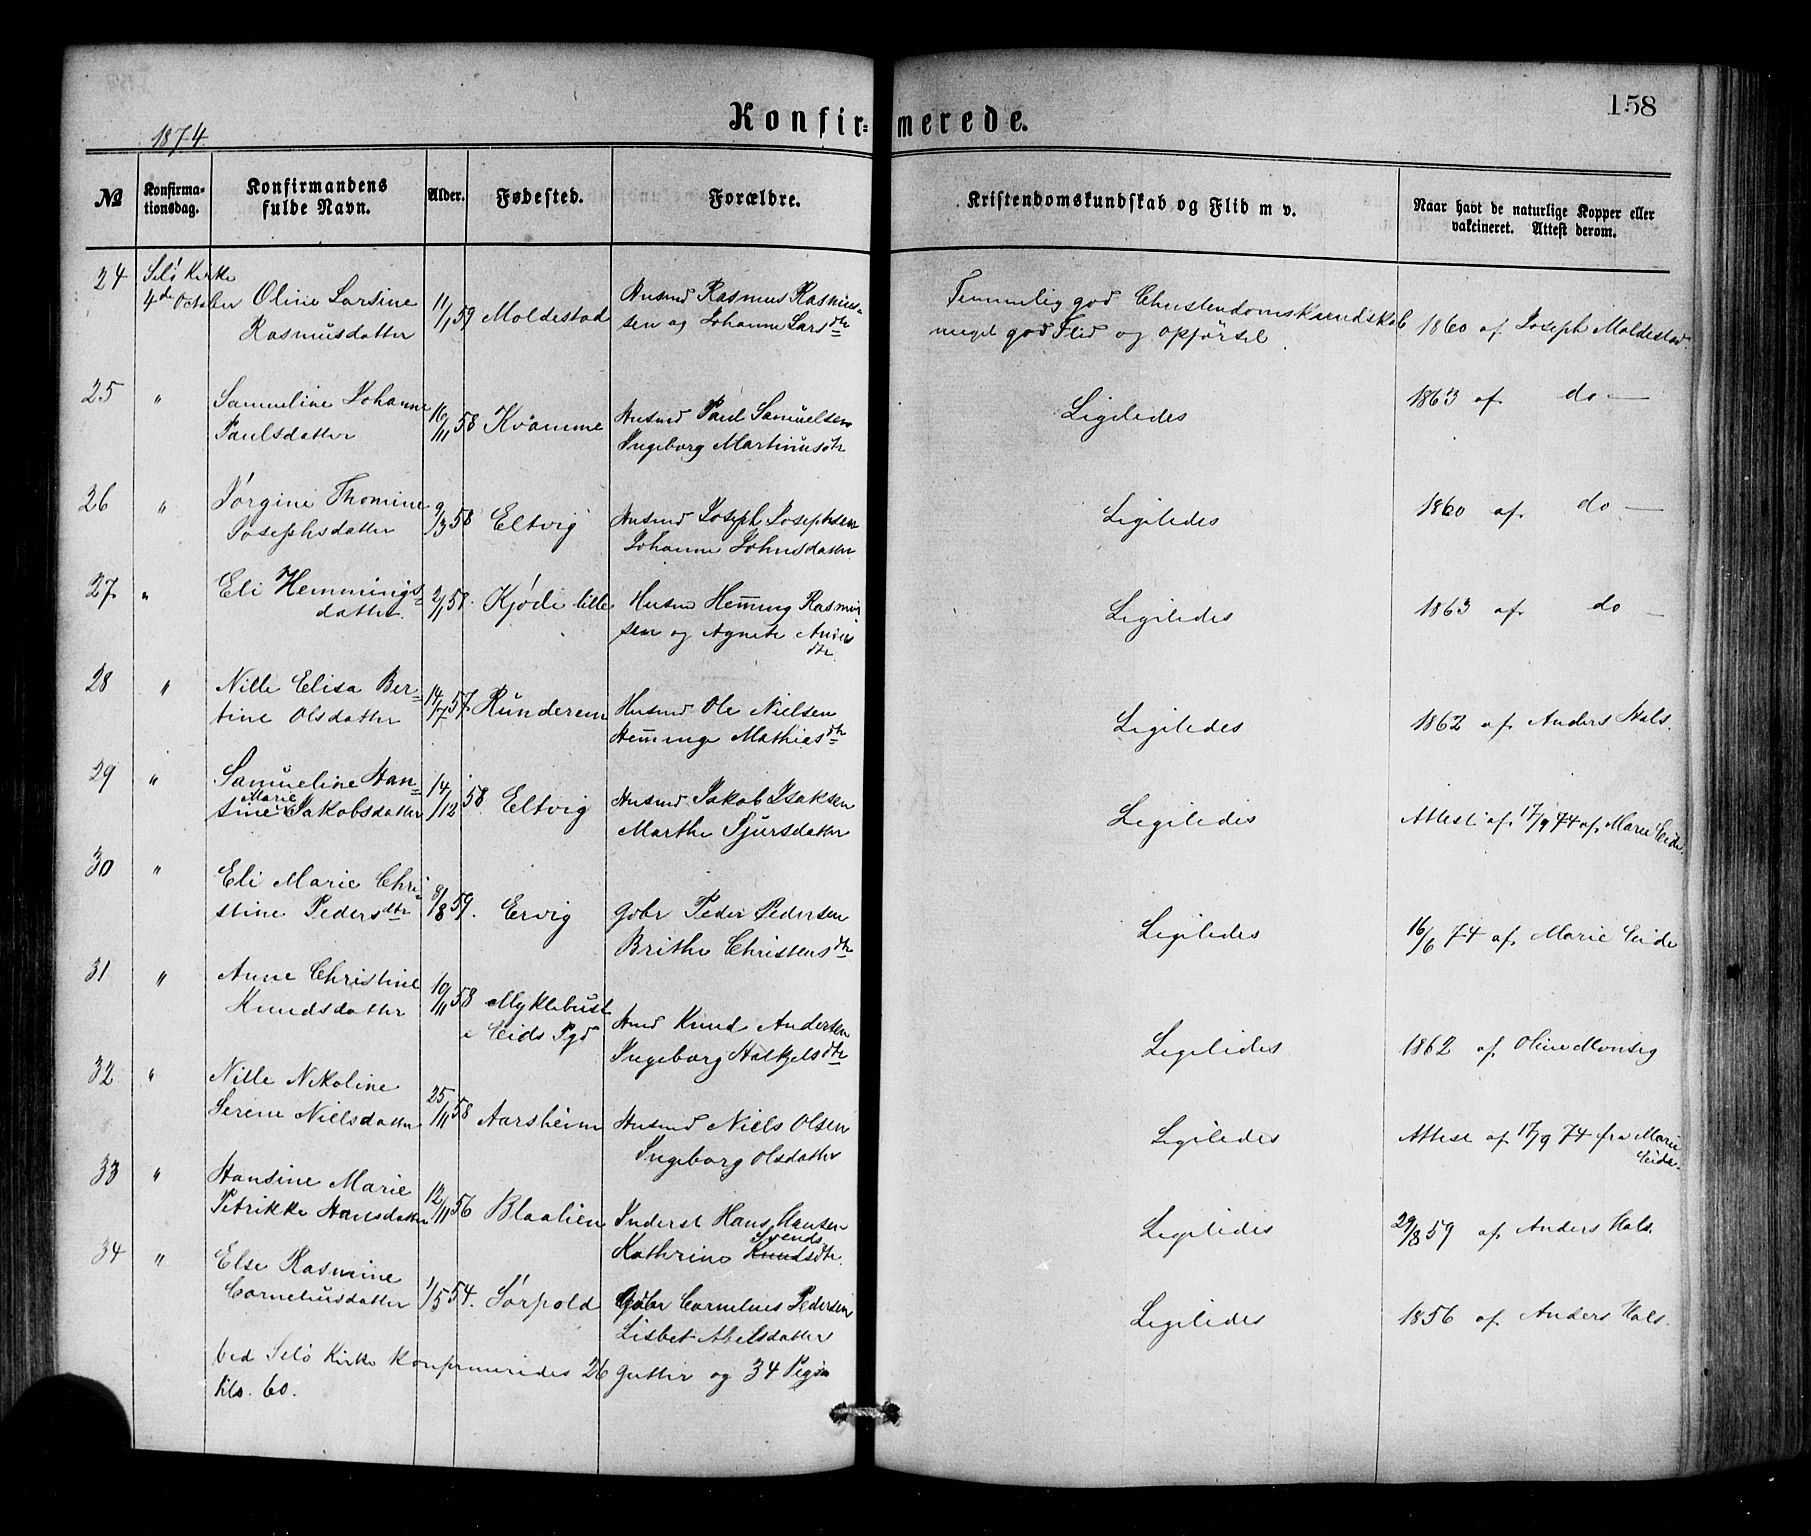 158
Konfir-merede.
1874.
№ Konfirma-tionsdag. Konfirmandens fulde Navn. Alder. Fødested. Forældre. Kristendomskundskab og Flid m v. Naar havt de naturlige Kopper eller vakcineret. Attest derom.
24 Selö Kirke 4de October Oline Larsine 11/1 59 Moldestad Husmd Rasmus Rasmus- Temmelig god Christendomskundskab 1860 af Joseph Moldestad.
Rasmusdatter sen og Johanne Larsdtr meget god Flid og Opførsel.
25 " Samueline Johanne 16/11 58 Kvamme Husmd Paul Samuelsen Ligeledes 1863 af do —
Paulsdatter Ingeborg Martinusdtr
26 " Jörgine Thomine 9/3 58 Eltvig Husmd Joseph Josephsen Ligeledes 1860 af do —
Josephsdatter Johanne Johnsdatter
27. " Eli Hemmings- 2/1 58. Kjöde lille Husmd Hem̄ing Rasmus Ligeledes 1863 af do —
datter. sen og Agnete Anders
dtr.
28 " Nille Elisa Ber- 14/7 57. Runderem Husmd Ole Nielsen Ligeledes 1862 af Anders Hals.
tine Olsdatter Hem̄inge Mathiesdtr
29 " Samueline Han- 14/12 58. Eltvig Husmd Jakob Isaksen Ligeledes Attest af 17/9 74 af Marie Eide.
sine Marie Jakobsdatter Marthe Sjursdatter
30 " Eli Marie Chri- 8/8 59. Ervig Gbr Peder Pedersen Ligeledes 16/6 74 af Marie Eide
stine Pedersdtr Brithe Christensdtr
31 " Anne Christine 10/11 58 Myklebust Ligeledes 1862 af Oline Monsig
Knudsdatter i Eids Pgd Hmd Knud Andersen
Ingeborg Halkjelsdtr
32 " Nille Nikoline 25/11 58 Aarsheim Husmd Niels Olsen Ligeledes Attest af 17/9 74 fra Marie Eide.
Serene Nielsdatter Ingeborg Olsdatter
33 " Hansine Marie 12/11 56 Blaalien Inderst Hans Hansen Ligeledes 29/8 59 af Anders Hals.
Petrikke Hansdatter Kathrine Svends Knudsdtr.
34 " Else Rasmine 1/5 54. Sörpold Gbr Cornelius Pedersen Ligeledes 1856 af Anders Hals.
Corneliusdatter Lisbet Abelsdatter
Ved Selö Kirke Konfirmeredes 26 Gutter og 34 Piger
tils. 60.